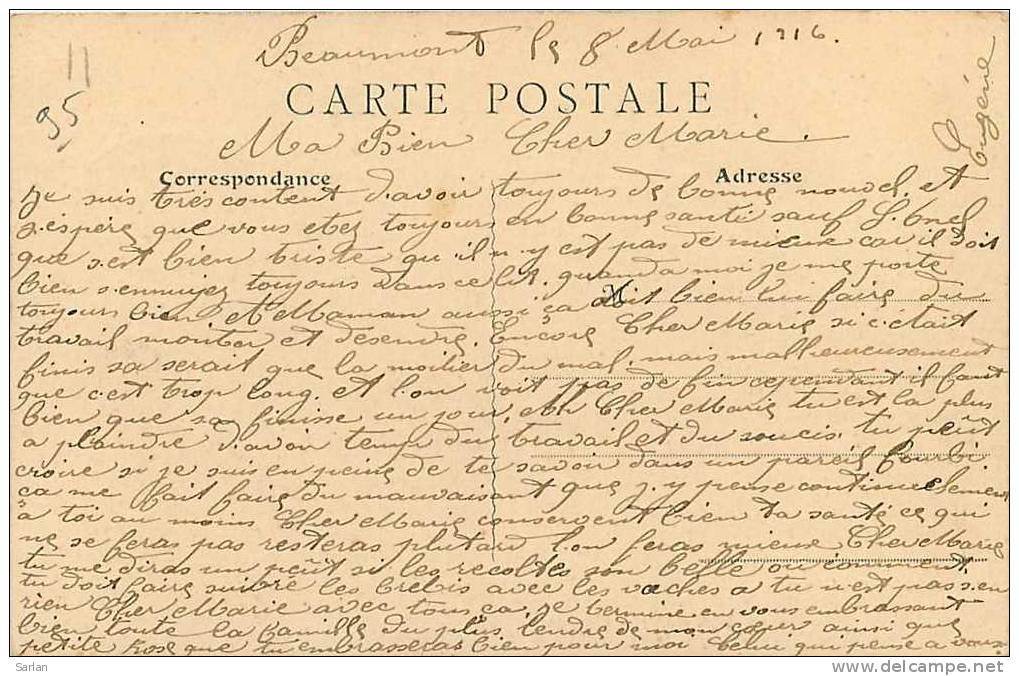 Beaumont le 8 Mai 1916.
11
95
CARTE POSTALE
Eugénie
Ma Bien Cher Marie.
Correspondance
Adresse
Je suis très content d'avoir toujours de bonne nouvel. et
j.espère que vous etez toujours en bonne santé sauf
que s.est bien triste qu'il n.y est pas de mieux car il doit
bien s.ennuyez toujours dans ce lit. quand a moi je me porte
toujours bien et Maman aussi ça doit bien lui faire du
travail monter et desendre. Encore Cher Marie si c.était
finis sa serait que la moitier du mal. mais malheureusement
que c'est trop long. et l.on voit pas de fin cependant il faut
bien que sa finisse un jour. Ah Cher Marie tu est la plus
a plaindre d'avoir temp du travail et du soucis. tu peût
croire si je suis en peine de te savoir dans un pareil fourbi
ça me fait faire du mauvaisant que j.y pense continuelement
à toi au moins Cher Marie conservent bien ta santé ce qui
ne se feras pas resteras plutard l.on feras mieux Cher Marie
tu me diras un peût si les recoltes son belle ou comment
tu doit faire suivre les brebis avec les vaches a tu n'est pas s.en
rien Cher Marie avec tous ça je termine en vous embrassant
bien toute la famille du plus tendre de mon cœur ainsi que
petite Rose que tu embrasseras bien pour moi Celui qui pense a vous.
Sarlan
www.delcampe.net